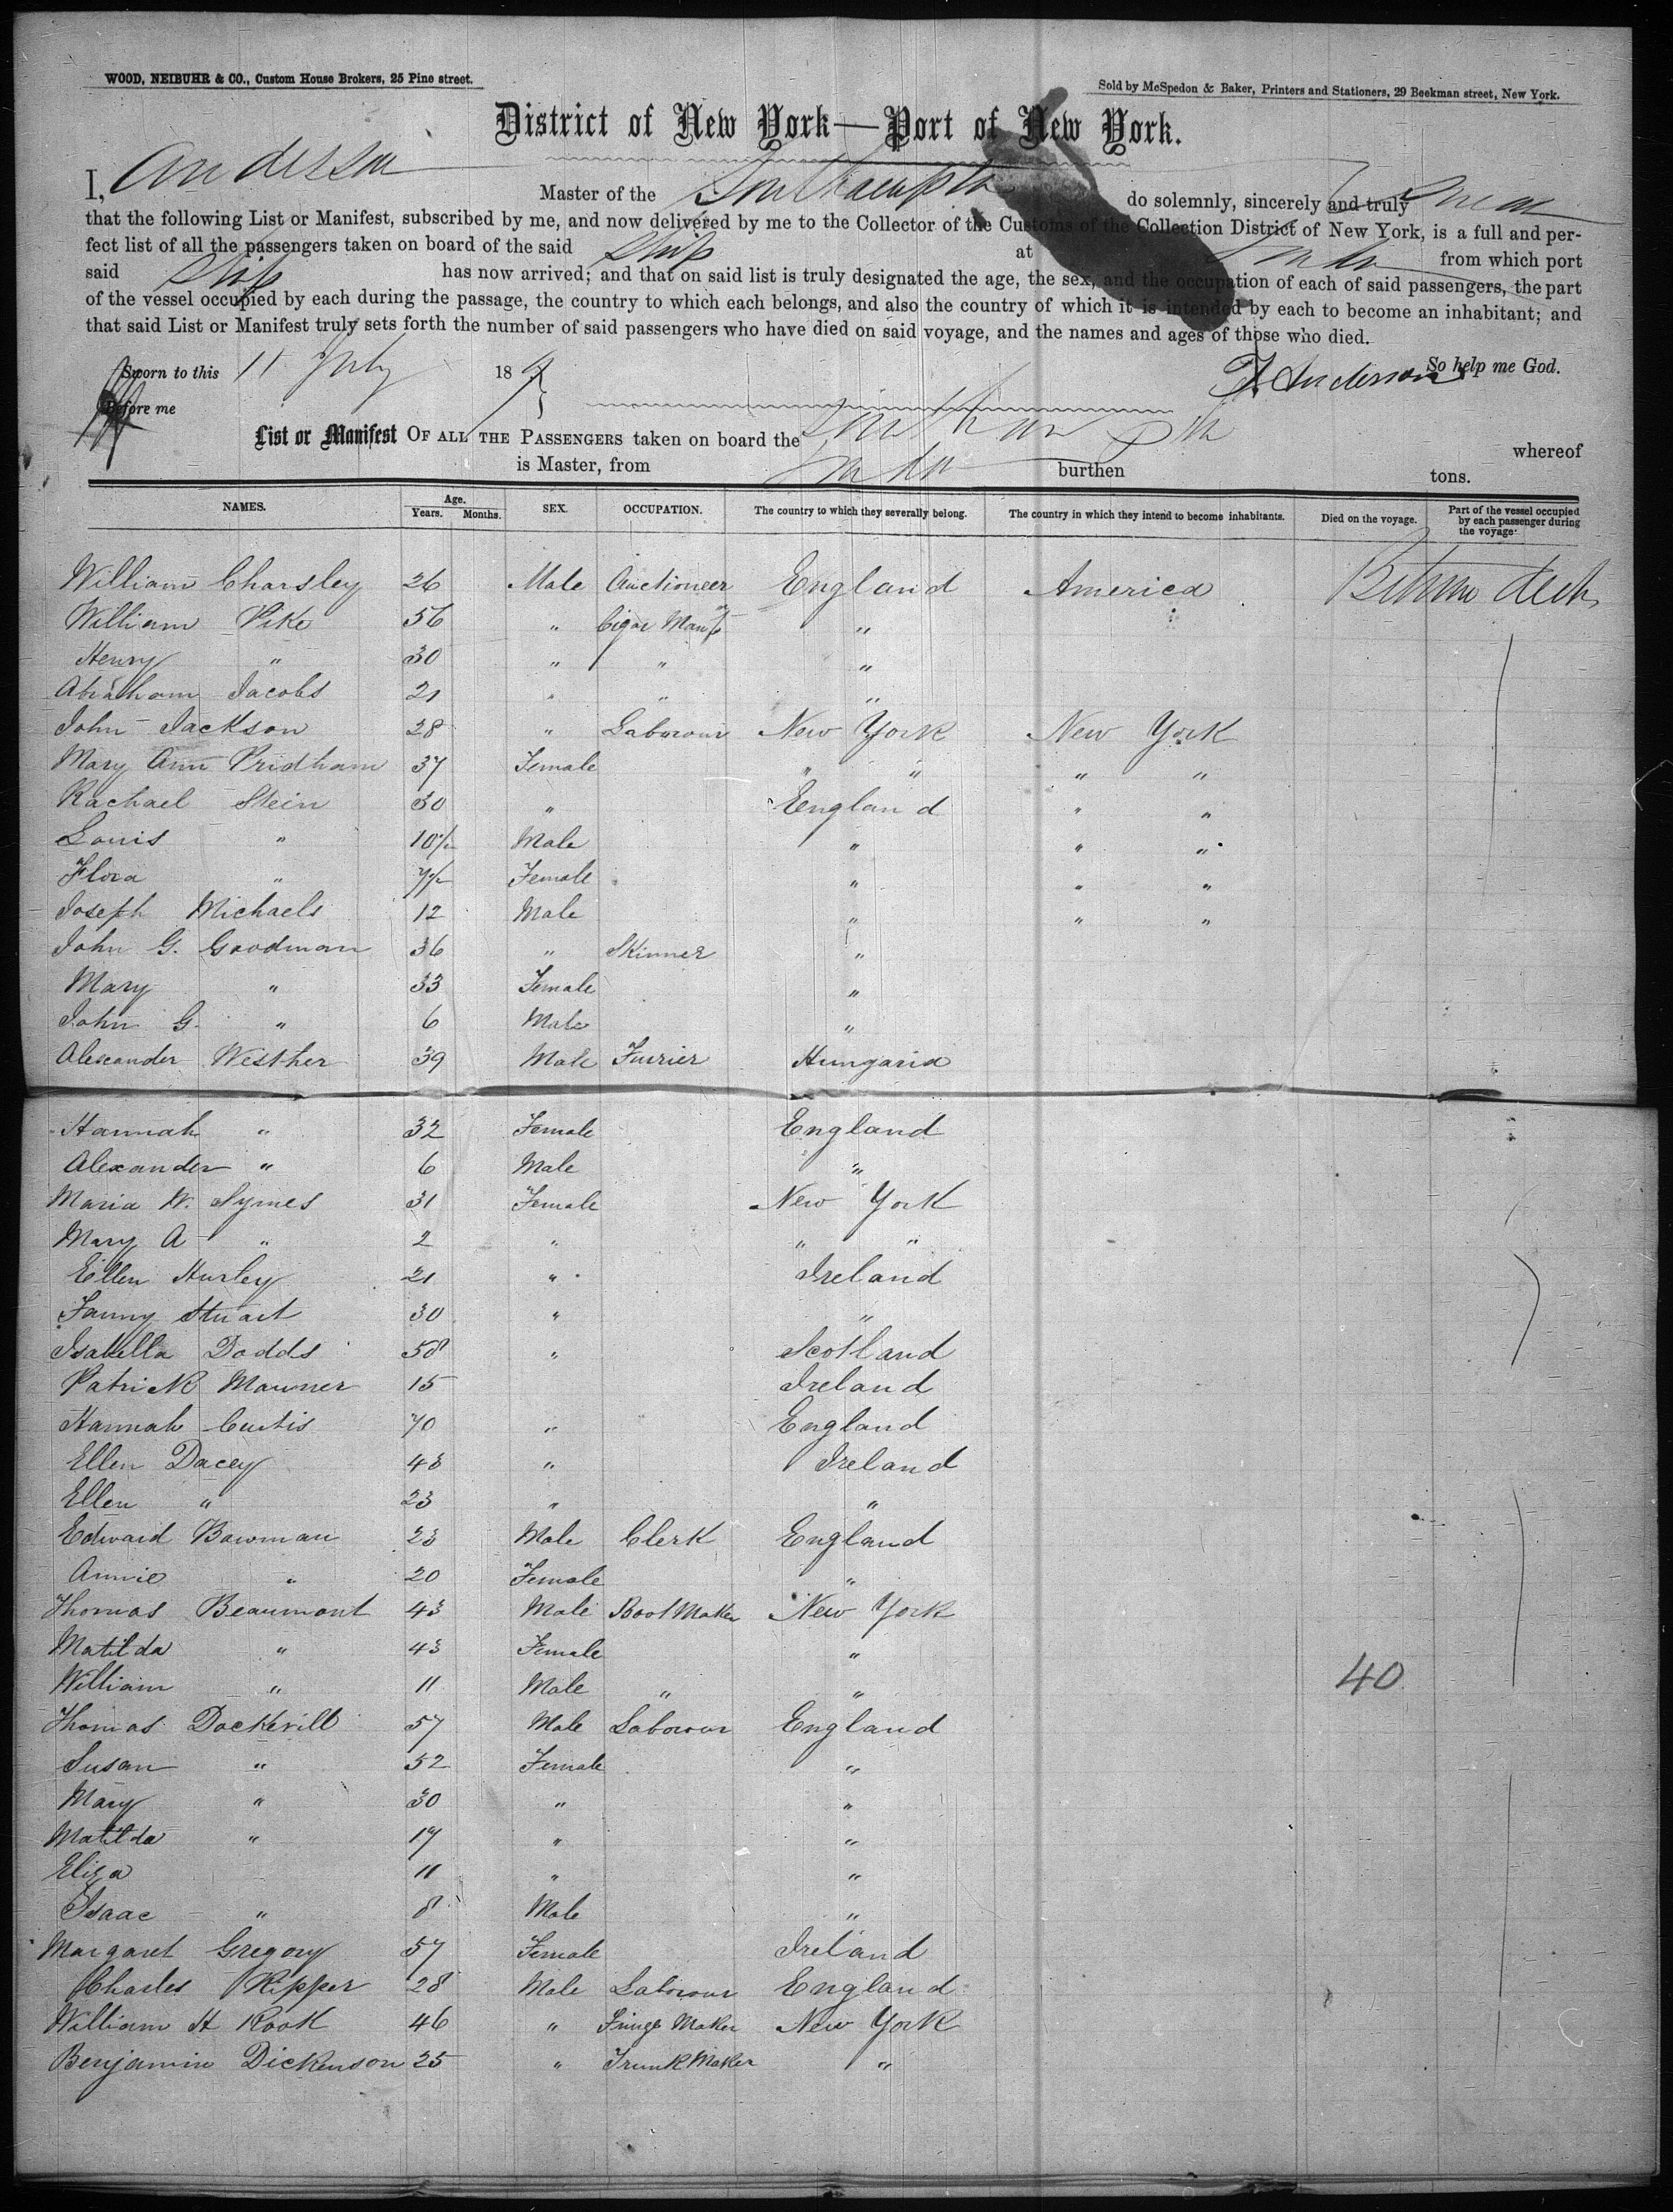 WOOD, NEIBUHR & CO., Custom House Brokers, 25 Pine street.
Sold by McSpedon & Baker, Printers and Stationers, 29 Beekman street, New York.
District of New York—Port of New York.
I, Anderson Master of the Southampton do solemnly, sincerely and truly Swear
that the following List or Manifest, subscribed by me, and now delivered by me to the Collector of the Customs of the Collection District of New York, is a full and per-
fect list of all the passengers taken on board of the said Ship at London from which port
said Ship has now arrived; and that on said list is truly designated the age, the sex, and the occupation of each of said passengers, the part
of the vessel occupied by each during the passage, the country to which each belongs, and also the country of which it is intended by each to become an inhabitant; and
that said List or Manifest truly sets forth the number of said passengers who have died on said voyage, and the names and ages of those who died.
Sworn to this 11 July 18 So help me God.
Anderson
Before me
List or Manifest OF ALL THE PASSENGERS taken on board the Southampton whereof
is Master, from London burthen tons.
NAMES. Age. Years. Months. SEX. OCCUPATION. The country to which they severally belong. The country in which they intend to become inhabitants. Died on the voyage. Part of the vessel occupied by each passenger during the voyage.
William Charsley 26 Male Auctioneer England America Between deck
William Pike 56 " Cigar Manfr "
Henry " 30 " " "
Abraham Jacobs 21 " " "
John Jackson 28 " Labourour New York New York
Mary Ann Pridham 37 Female " " " "
Rachael Stein 30 " England " "
Louis " 10½ Male " " "
Flora " 7½ Female " " "
Joseph Michaels 12 Male " " "
John G. Goodman 36 " Skinner "
Mary " 33 Female "
John G. " 6 Male "
Alexander Westher 39 Male Furrier Hungaria
Hannah " 32 Female England
Alexander " 6 Male "
Maria W. Symes 31 Female New York
Mary A " 2 " " "
Ellen Hurley 21 " Ireland
Fanny Stuart 30 " "
Isabella Dodds 58 " Scotland
Patrick Mawner 15 Ireland
Hannah Curtis 70 " England
Ellen Dacey 43 " Ireland
Ellen " 23 " "
Edward Bowman 23 Male Clerk England
Annie " 20 Female "
Thomas Beaumont 43 Male Boot Maker New York
Matilda " 43 Female "
William " 11 Male " " 40
Thomas Dockerill 57 Male Labourour England
Susan " 52 Female "
Mary " 30 " "
Matilda " 17 " "
Eliza 11 " "
Isaac " 8 Male "
Margaret Gregory 57 Female Ireland
Charles Kipper 28 Male Labourour England
William H Rook 46 " Fringe Maker New York
Benjamin Dickenson 25 " Trunk Maker "